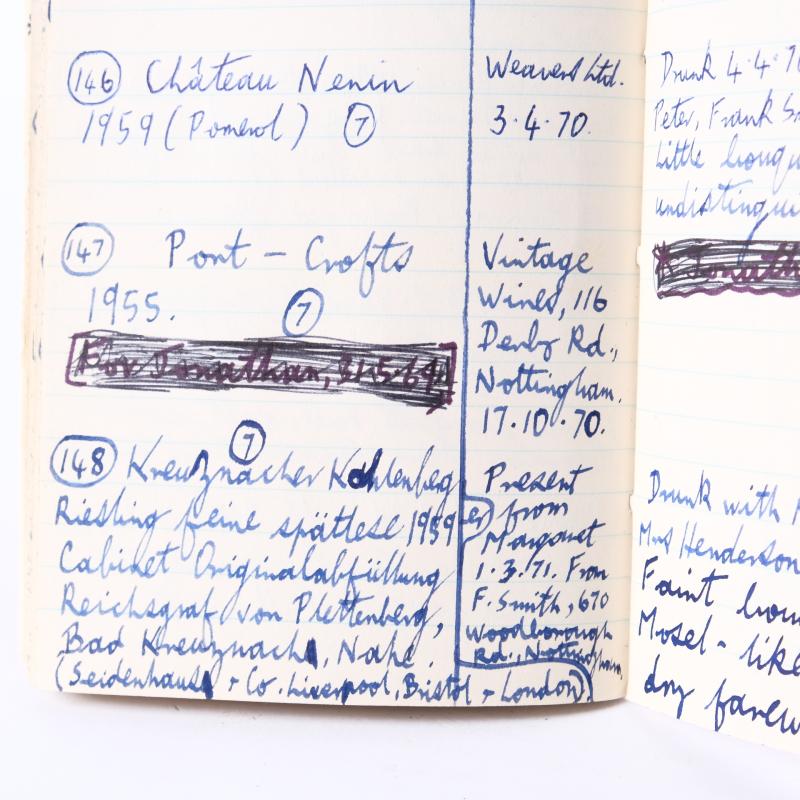 146 Château Nenin
1959 (Pomerol) 7
Weavers Ltd.
3.4.70.
Drunk 4.4.70
Peter, Frank
Little
147 Port - Crofts
1955. 7
For Jonathan, 21.5.69
Vintage
Wines, 116
Derby Rd.,
Nottingham.
17.10.70.
7
148 Kreuznacher Kahlenberg
Riesling feine spätlese 1959
Cabinet Originalabfüllung
Reichsgraf von Plettenberg,
Bad Kreuznach, Nahe.
(Seidenhaus + Co. Liverpool, Bristol + London)
Present
from
Margaret
1.3.71. From
F. Smith, 670
Woodborough
Rd., Nottingham.
Drunk with
Mrs Henderson
Faint
Mosel - like
dry